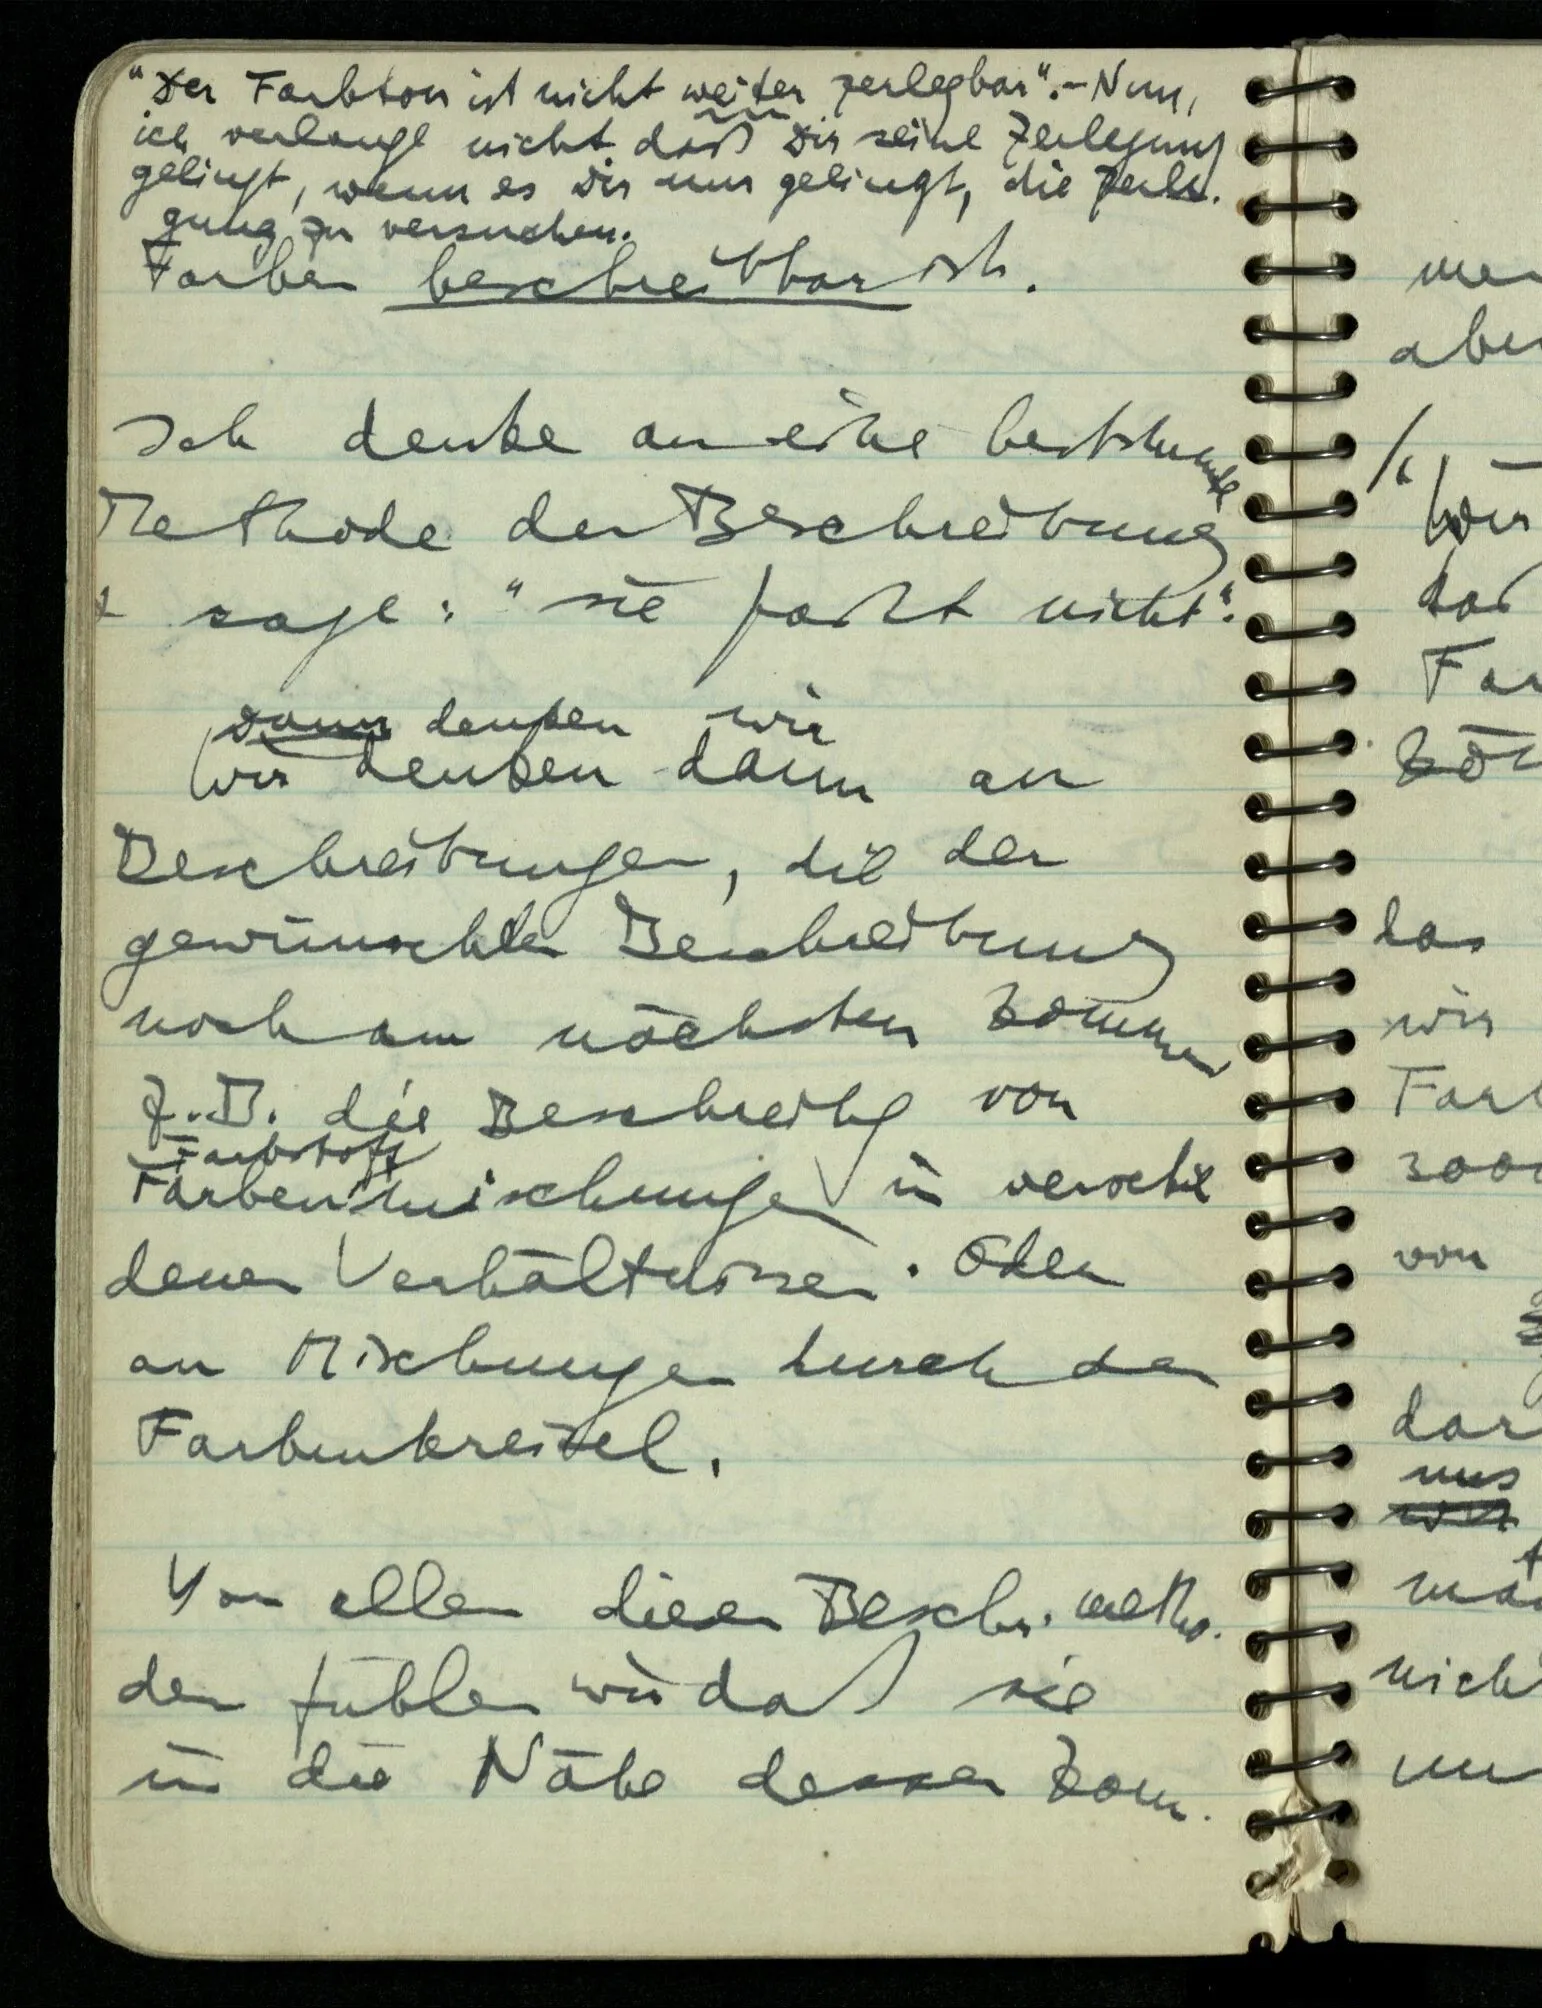 "Der Farbton ist nicht weiter zerlegbar".–Nun,
ich verlange nicht daß Dir seine Zerlegung
gelingt, wenn es Dir nur gelingt, die Zerle-
gung zu versuchen.
Farben beschreibbar ist.
Ich denke an eine bestimmte
Methode der Beschreibung
+ sage: "sie paßt nicht".
Dann denken wir
Wir denken dann an
Beschreibungen, die der
gewünschten Beschreibung
noch am nächsten kommen
z.B. die Beschreibg von
Farbstoff
Farbenmischungen in verschie
denen Verhältnissen. Oder
an Mischungen durch den
Farbenkreisel.
Von allen diesen Beschr. metho-
den fühlen wir daß sie
in die Nähe dessen kom-
aber
wir
das
Far
das
wir
Farb
von
dar
uns
nich